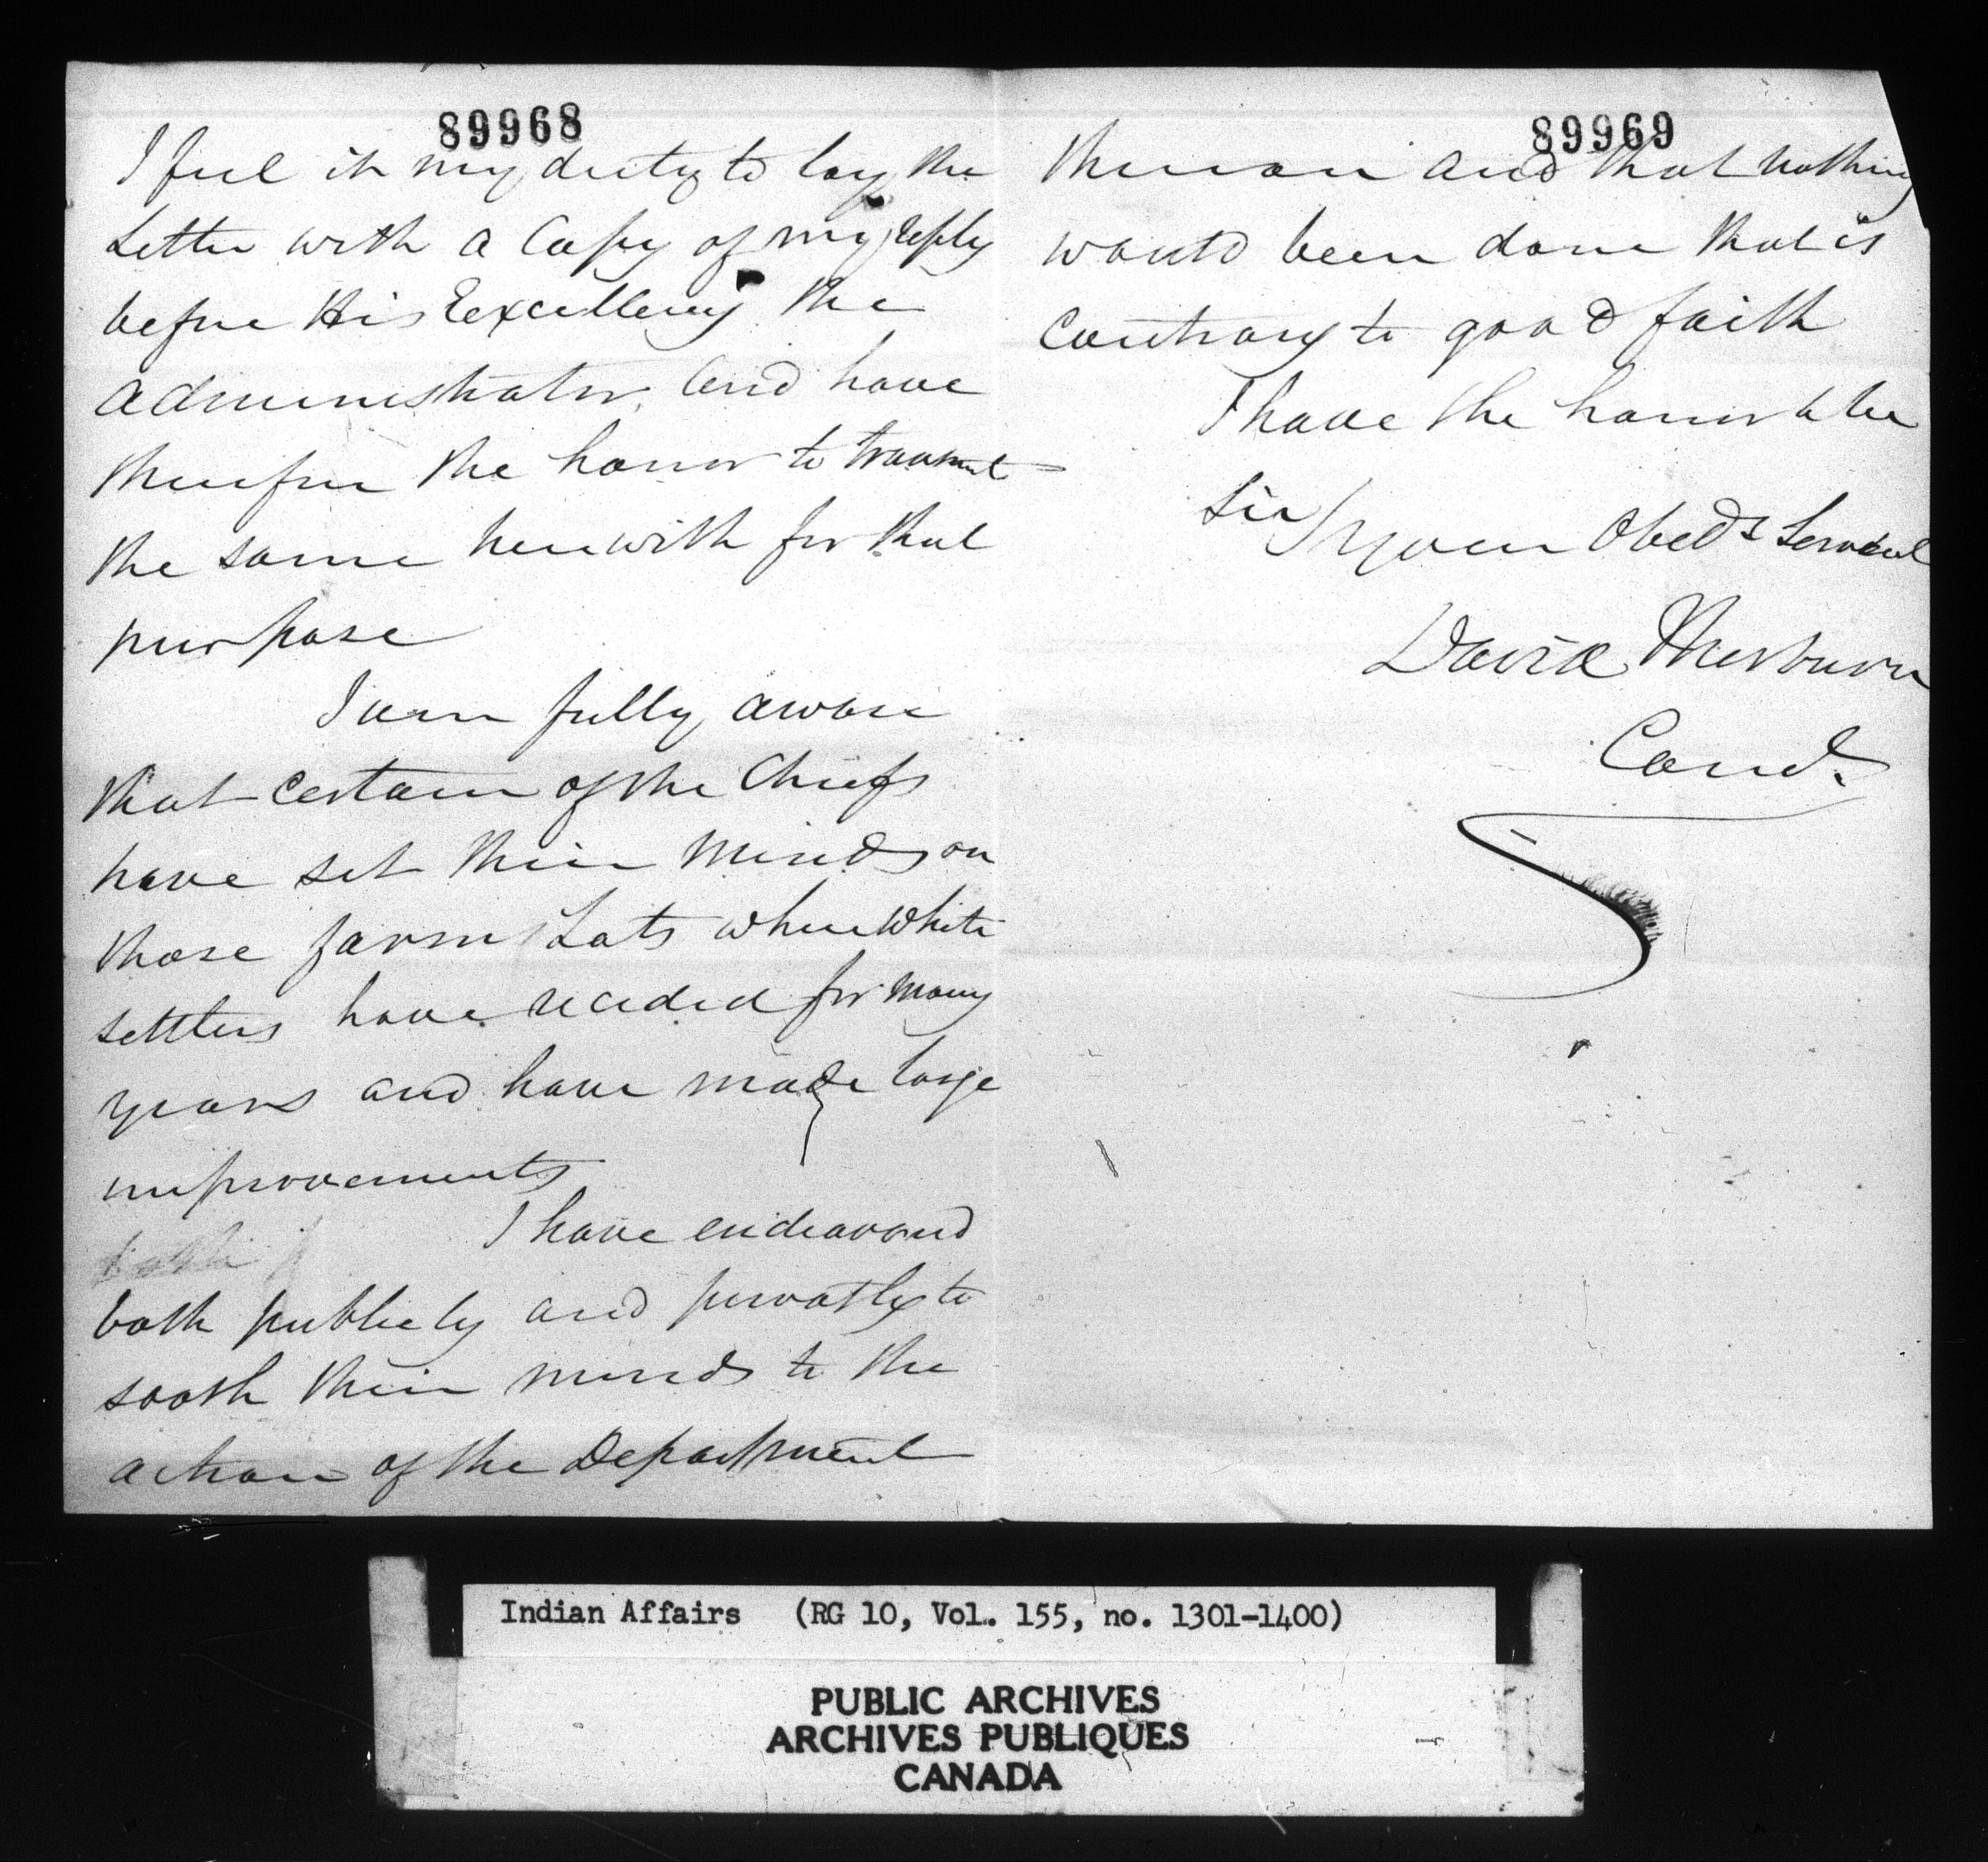 89968
I feel it my duty to lay the
Letter with a Copy of my reply
before His Eexcellency the
Administrator, and have
therefore the honor to transmit
the same herewith for that
purpose
I am fully aware
that certain of the Chiefs
have set their minds on
those farm Lots where White
settlers have resided for many
years and have made large
improvements
I have endeavored
both publicly and privatly to
sooth their minds to the
action of the Department
89969
thereon and that nothing
would been done that is
contrary to good faith
I have the honor to be
Sir
Your Obedt Servant
David Thorburn
Comd.
Indian Affairs (RG 10, Vol. 155, no. 1301-1400)
PUBLIC ARCHIVES
ARCHIVES PUBLIQUES
CANADA